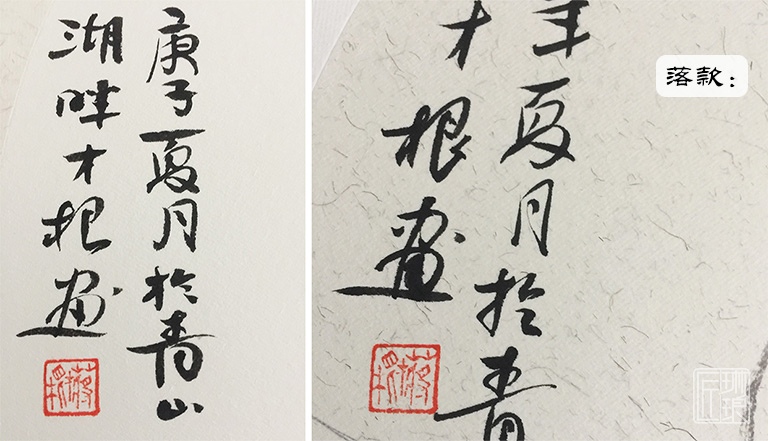 庚子夏月於青山
湖畔才根畫
落款：
年夏月於青
才根畫